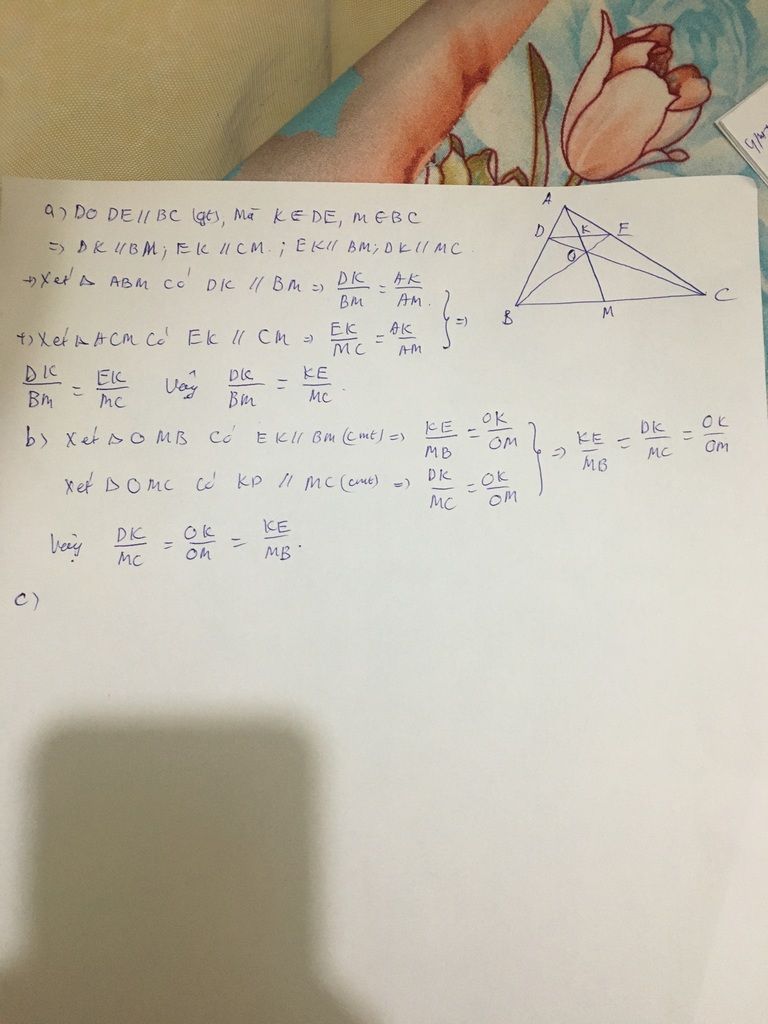 a) DO DE // BC (gt), Mà K ∈ DE, M ∈ BC
=> DK // BM ; EK // CM. ; EK // BM; DK // MC
+) Xét Δ ABM Có DK // BM => DK/BM = AK/AM.
+) Xét Δ ACM Có EK // CM => EK/MC = AK/AM } =>
DK/BM = EK/MC Vậy DK/BM = KE/MC.
b) Xét Δ OMB Có EK // BM (cmt) => KE/MB = OK/OM
Xét Δ OMC Có KD // MC (cmt) => DK/MC = OK/OM } => KE/MB = DK/MC = OK/OM
Vậy DK/MC = OK/OM = KE/MB.
c)
A
D K E
O
B M C